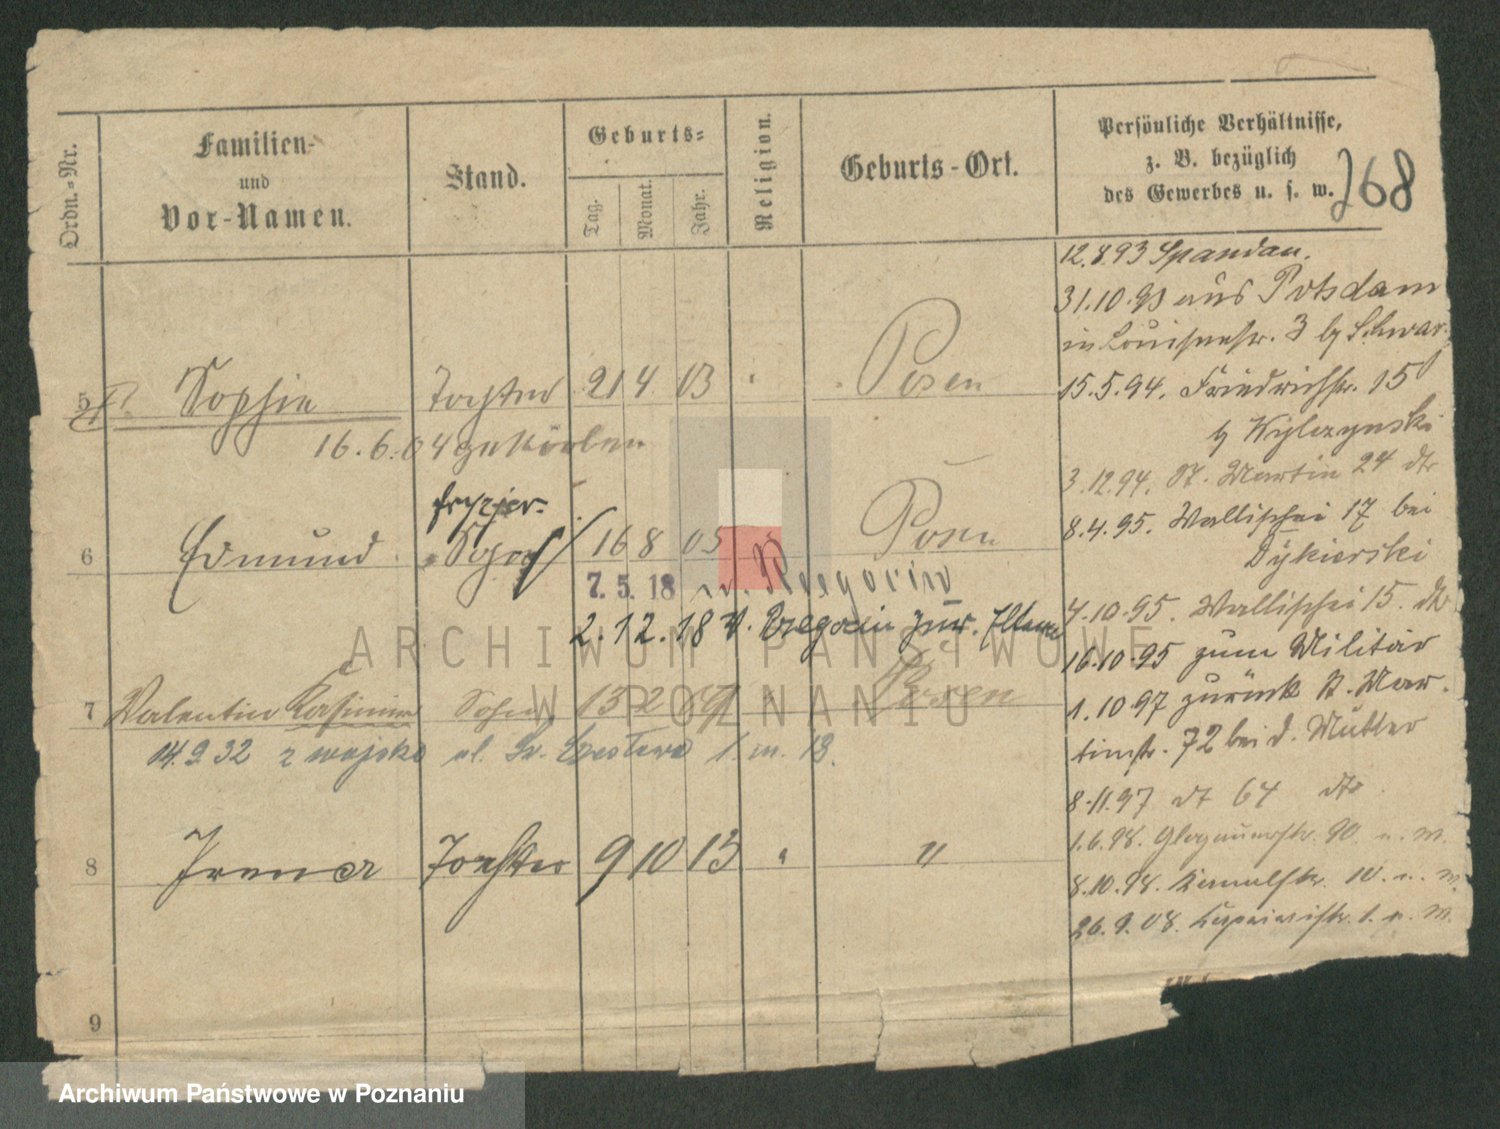 Ordn.=Nr.
Familien-
und
Vor-Namen.
Stand.
Geburts=
Tag.
Monat.
Jahr.
Religion.
Geburts-Ort.
Persönliche Verhältnisse,
z. B. bezüglich
des Gewerbes u. s. w.
268
12.8.93 Spandau.
31.10.93 aus Potsdam
in Louisenstr. 3 b/ Schwar
15.5.94. Friedrichstr. 15
b/
3.12.94. St. Martin 24 dto
8.4.95. Wallischei 17 bei
Dykierski
4.10.95. Wallischei 15. dto
16.10.95 zum Militär
1.10.97 zurück St. Mar-
tinstr. 72 bei d. Mutter
8.11.97 dt 64 dto
1.6.98. Glogauerstr. 90 u. M.
8.10.98. 10. u. M.
26.9.08. 1. u. M.
5 Sophie Tochter 21 4 03 " Posen
16.6.04 gestorben
fryzjer
6 Edmund Sohn 16 8 05 Posen
7.5.18
2.12.18 v. zur. Eltern
7 Valentin Kasimir Sohn 13 2 Posen
14.9.32 z wojska ul. Św. Czesława 1. m. 13.
8 Irena Tochter 9 10 13 " "
9
ARCHIWUM PAŃSTWOWE
W POZNANIU
Archiwum Państwowe w Poznaniu